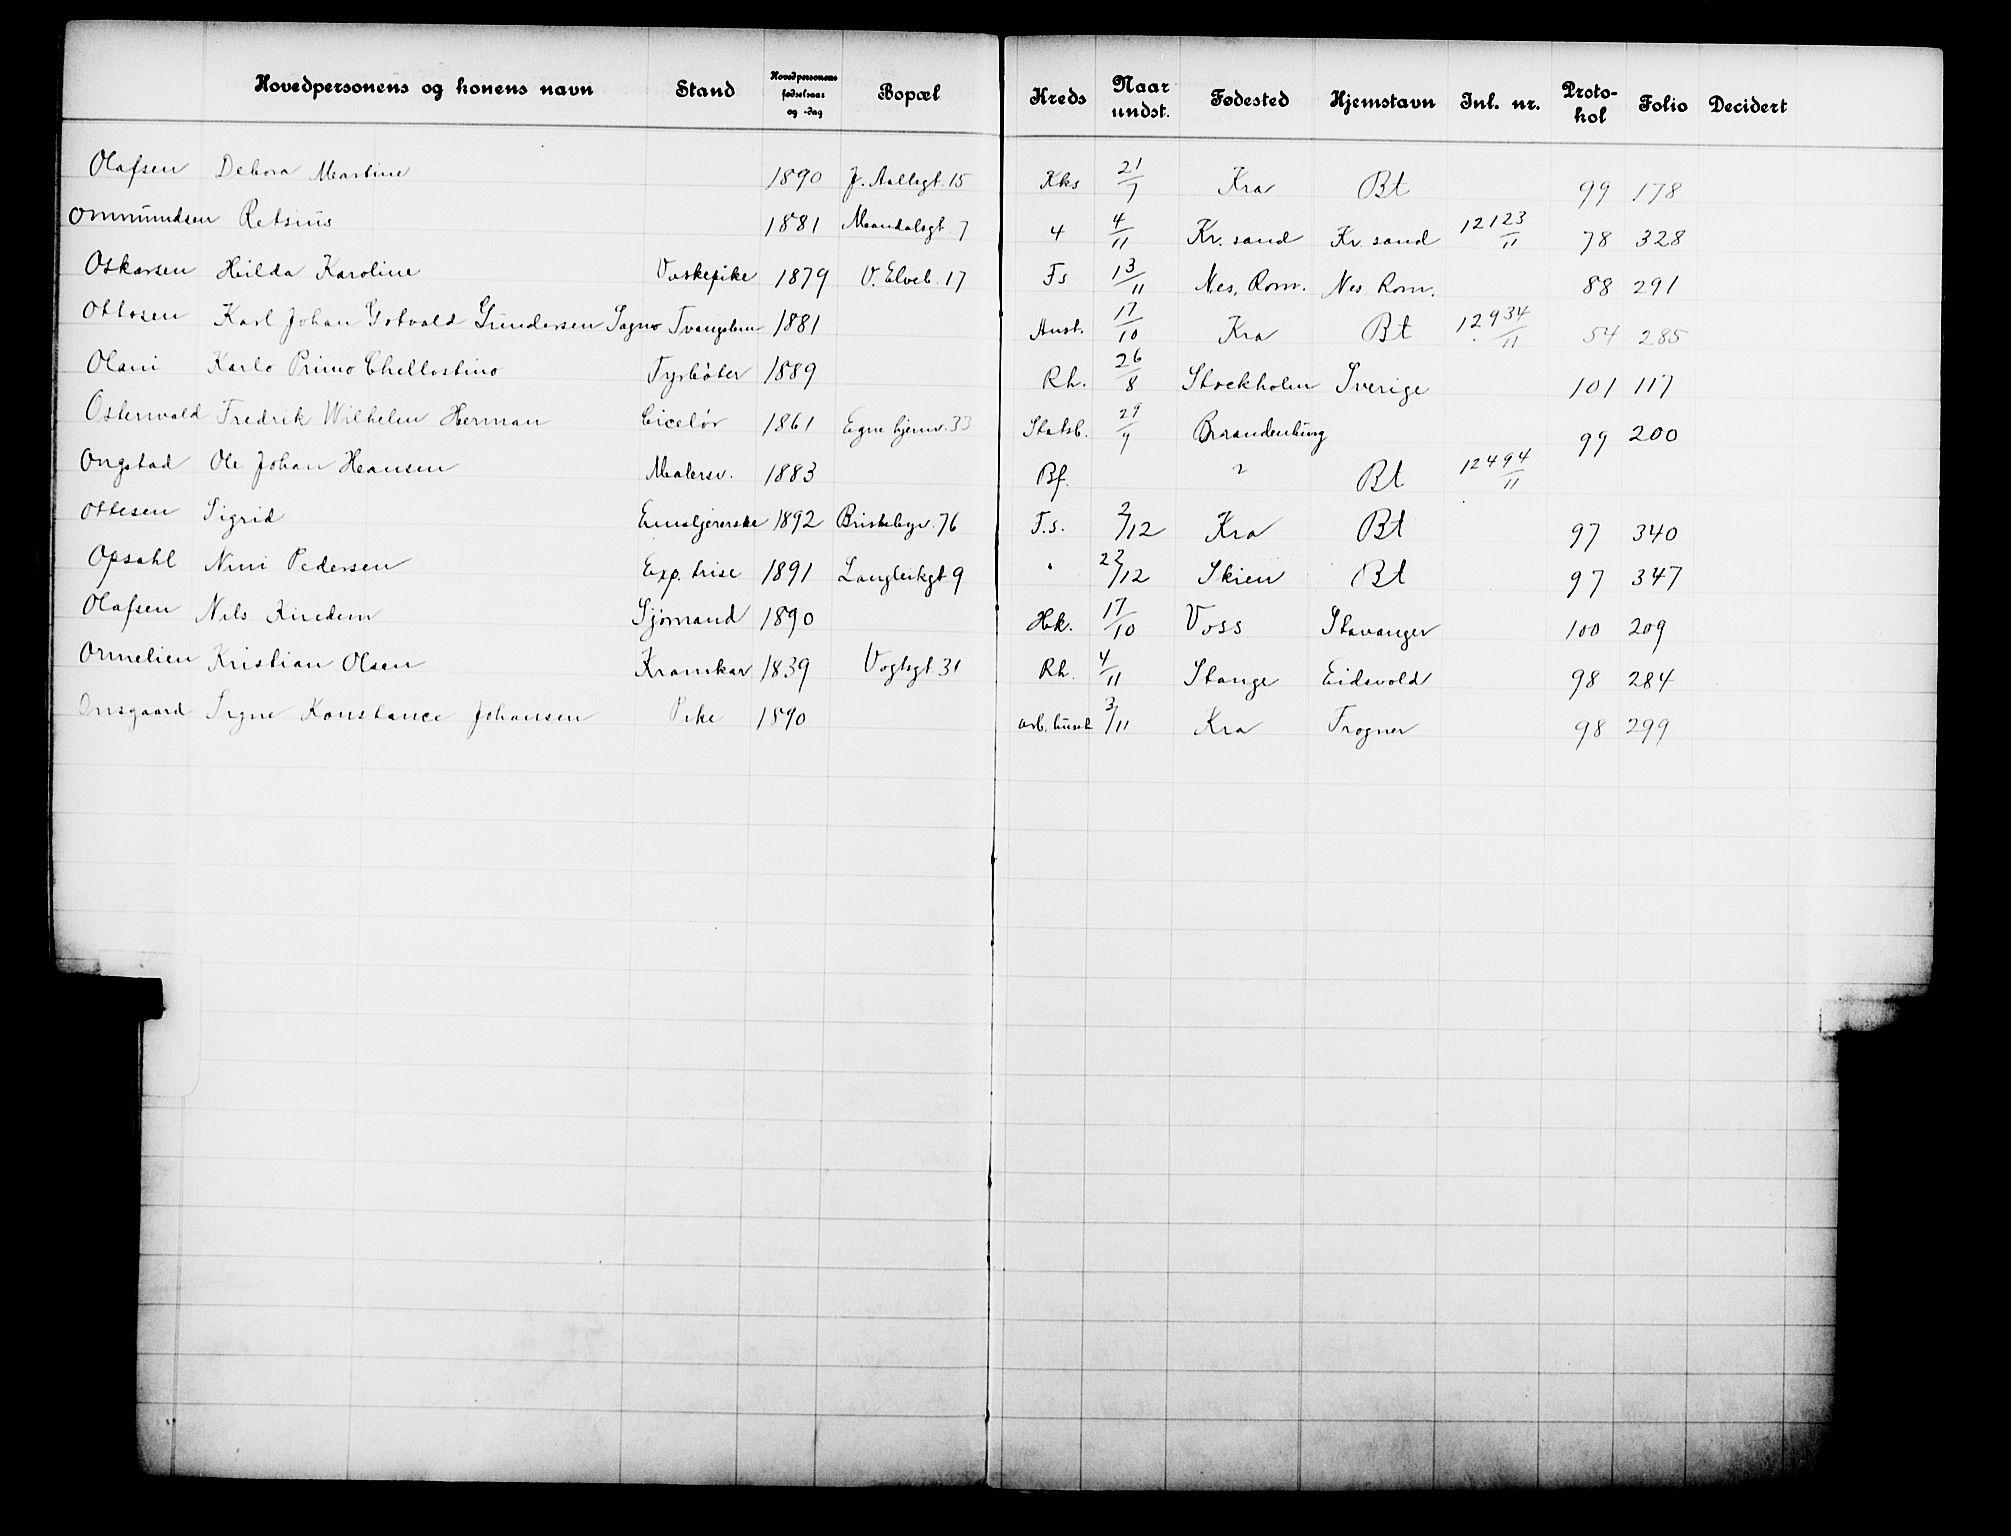 Hovedpersonens og konens navn Stand Hovedpersonens fødselsaar og -dag Bopæl Kreds Naar undst. Fødested Hjemstavn Inl. nr. Proto-kol Folio Decidert
Olafsen Debora Martine 1890 J. Aallsgt. 15 Kks 21/7 Kra Bt 99 178
Ommundsen Retsius 1881 Mandalsgt. 7 4 4/11 Kr. sand Kr. sand 12123/11 78 328
Oskarsen Hilda Karoline Vaskepike 1879 V. Elveb. 17 Fs 13/11 Nes, Rom. Nes Rom. 88 291
Ottosen Karl Johan Gotvald Gundersen Sagmo Tvangslem 1881 Anst. 17/10 Kra Bt 12934/11 54 285
Olani Karlo Primo Chellostino Fyrbøter 1889 Rh. 26/8 Stockholm Sverige 101 117
Ostenwald Fredrik Wilhelm Herman Ciselør 1861 Egne hjemv. 33 Statsb. 29/9 Brandenburg 99 200
Ongstad Ole Johan Hansen Malersv. 1883 Bf. ? Bt 12494/11
Ottesen Sigrid Emaljererske 1892 Briskebyv. 76 F.s. 2/12 Kra Bt 97 340
Opsahl Nini Pedersen Exp. trise 1891 Langleikgt 9 " 22/12 Skien Bt 97 347
Olafsen Nils Kindem Sjømand 1890 Hk. 17/10 Voss Stavanger 100 209
Ormelien Kristian Olsen Kramkar 1839 Vogtsgt 31 Rh. 4/11 Stange Eidsvold 98 284
Onsgaard Signe Konstance Johansen Pike 1890 arb. huset 3/11 Kra Frogner 98 299